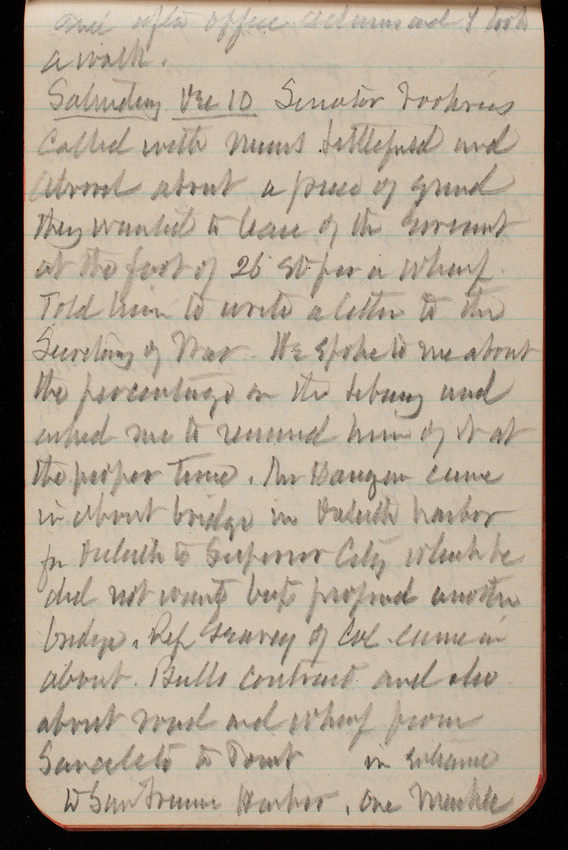 and after office Adams and I took
a walk.
Saturday Dec 10 Senator Voohries
called with Messrs Littlefield and
Atwood about a piece of ground
they wanted to lease of the Government
at the foot of 26 St for a wharf.
Told him to write a letter to the
Secretary of War. He spoke to me about
the percentage on the library and
asked me to remind him of it at
the proper time. Mr came
in about bridge in Duluth harbor
for Duluth to Superior City which he
did not want but proposed another
bridge. Rep Geary of Cal. came in
about. Bulls contract and also
about road and wharf from
Sausalito to Point in entrance
to San Francisco Harbor, One